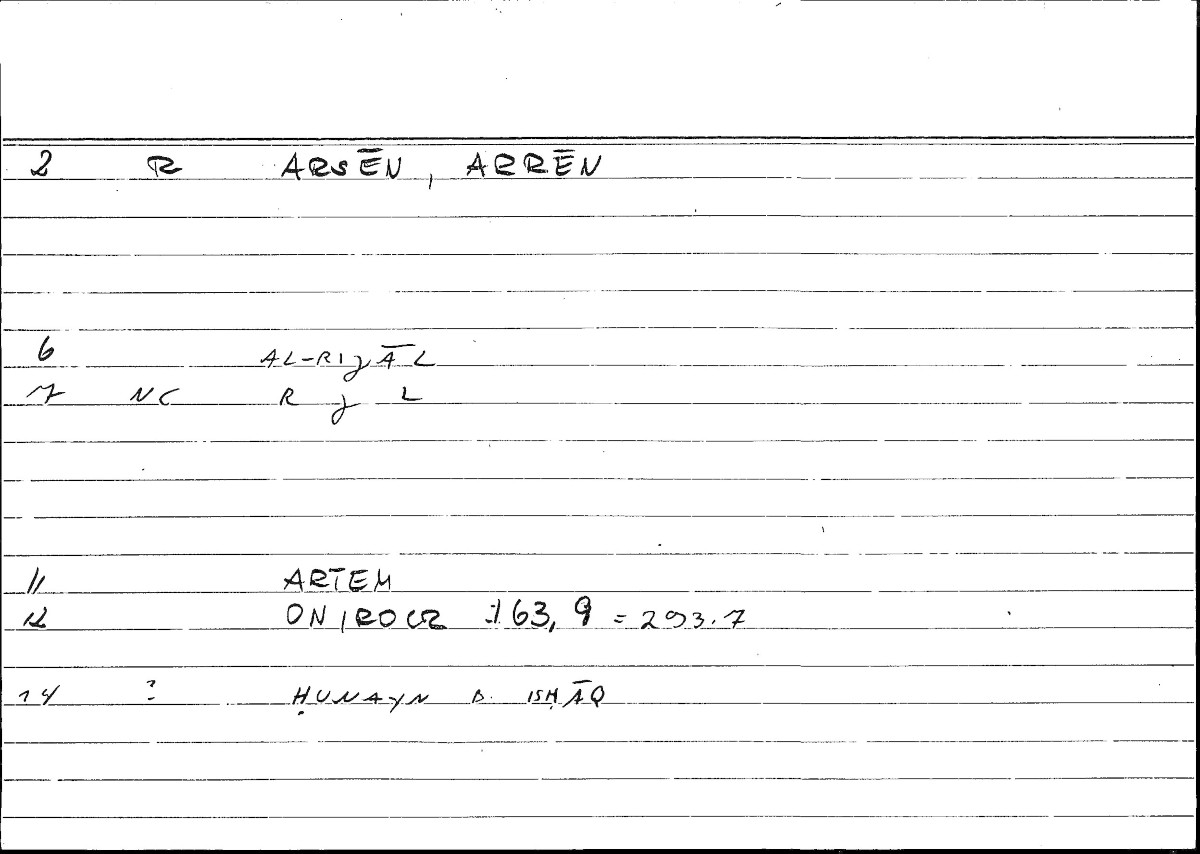 2 R ARSĒN, ARRĒN
6 AL-RIJĀL
7 NC R J L
11 ARTEM
12 ONIROCR 163, 9 = 293.7
14 ? ḤUNAYN B. ISḤĀQ